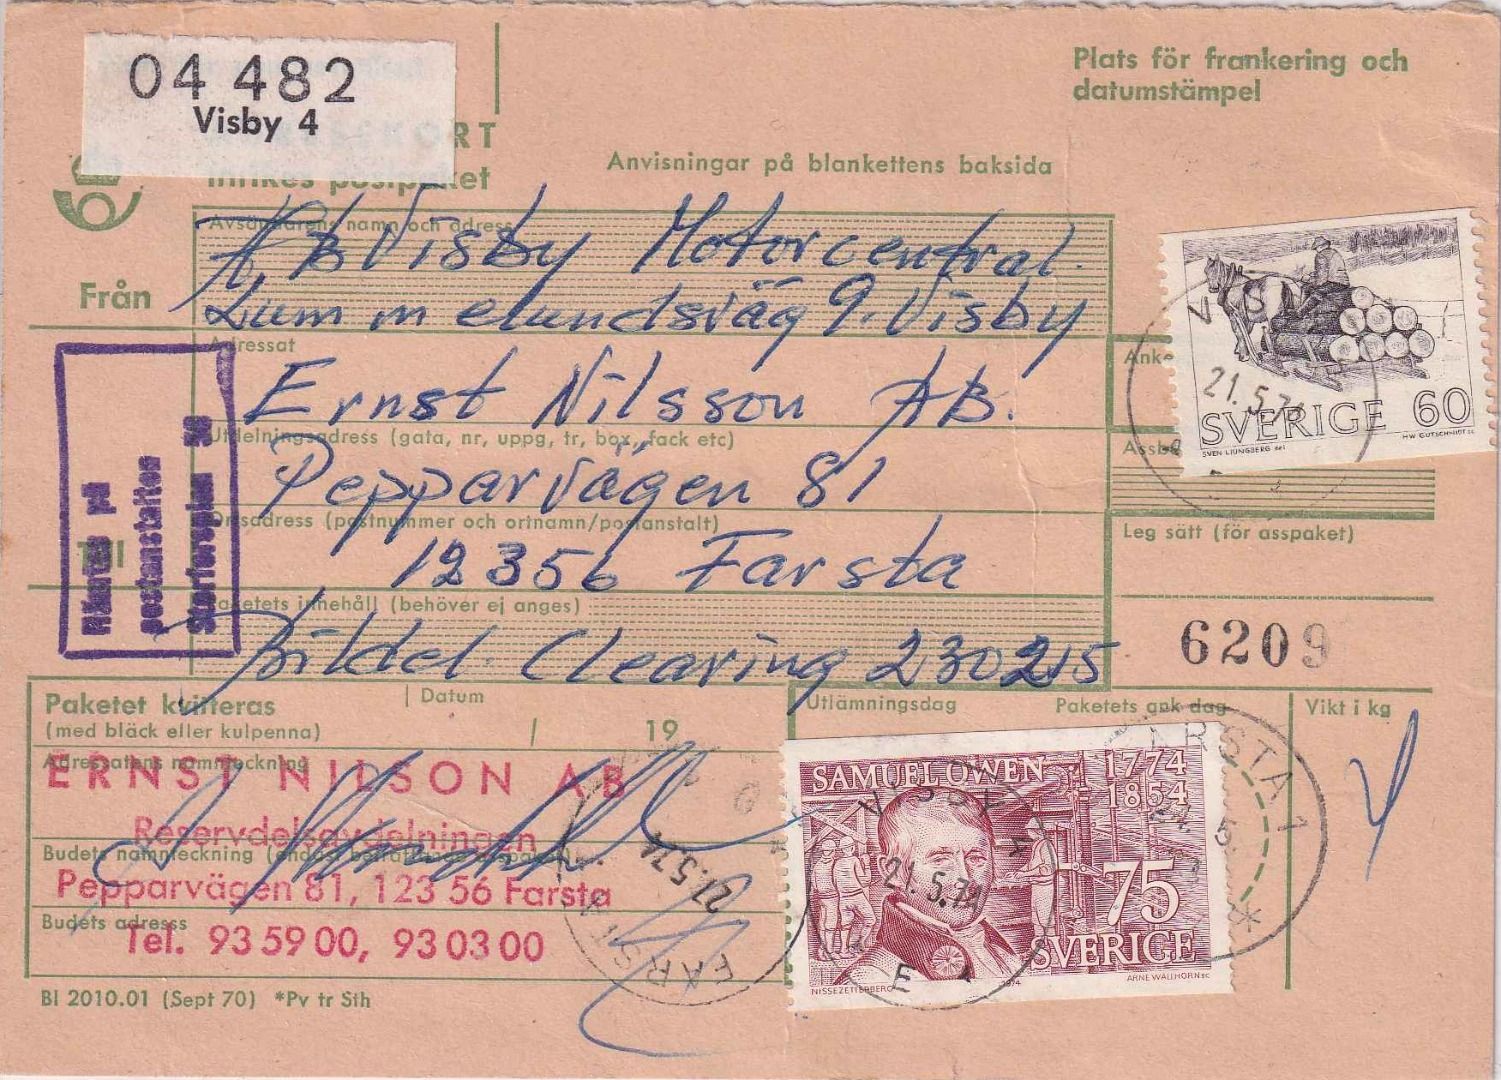 04 482
Visby 4
Plats för frankering och
datumstämpel
Inrikes postpaket
Anvisningar på blankettens baksida
Avsändarens namn och adress
AB Visby Motorcentral
Från
Lummelundsväg 9. Visby
Adressat
Ernst Nilsson AB.
Utdelningsadress (gata, nr, uppg, tr, box, fack etc)
Pepparvägen 81
Ortsadress (postnummer och ortnamn/postanstalt)
12356 Farsta
Till
Paketets innehåll (behöver ej anges)
Bildel. Clearing 230215
Hämtas på
postanstalten
Leg sätt (för asspaket)
6209
SVERIGE 60
SVEN LJUNGBERG del
HW GUTSCHMIDT sc
21.5.74
Paketet kvitteras
(med bläck eller kulpenna)
Datum
/ 19
Utlämningsdag
Paketets ank dag
Vikt i kg
4
Adressatens namnteckning
ERNST NILSON AB
Reservdelsavdelningen
Pepparvägen 81, 123 56 Farsta
Budets adress
Tel. 93 59 00, 93 03 00
FARSTA
21.5.74
SAMUEL OWEN 1774
1854
75
SVERIGE
NISSE ZETTERBERG
1974
ARNE WALLHORN sc
VISBY 4
21.5.74
FARSTA 1
Bl 2010.01 (Sept 70) *Pv tr Sth